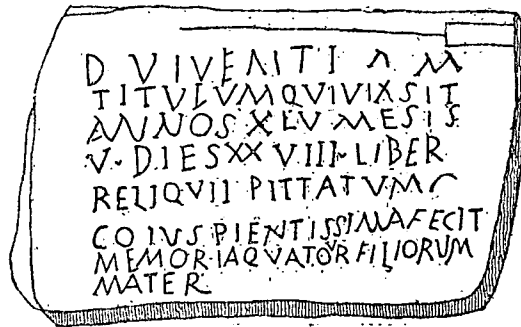 D VIVENTI A M
TITVLVM QVI VIXSIT
ANNOS XLV MESIS
V· DIES XXVIII· LIBER
RELIQVII PITTATVM C
COIVS PIENTISSIMA FECIT
MEMORIA QVATOVR FILIORUM
MATER